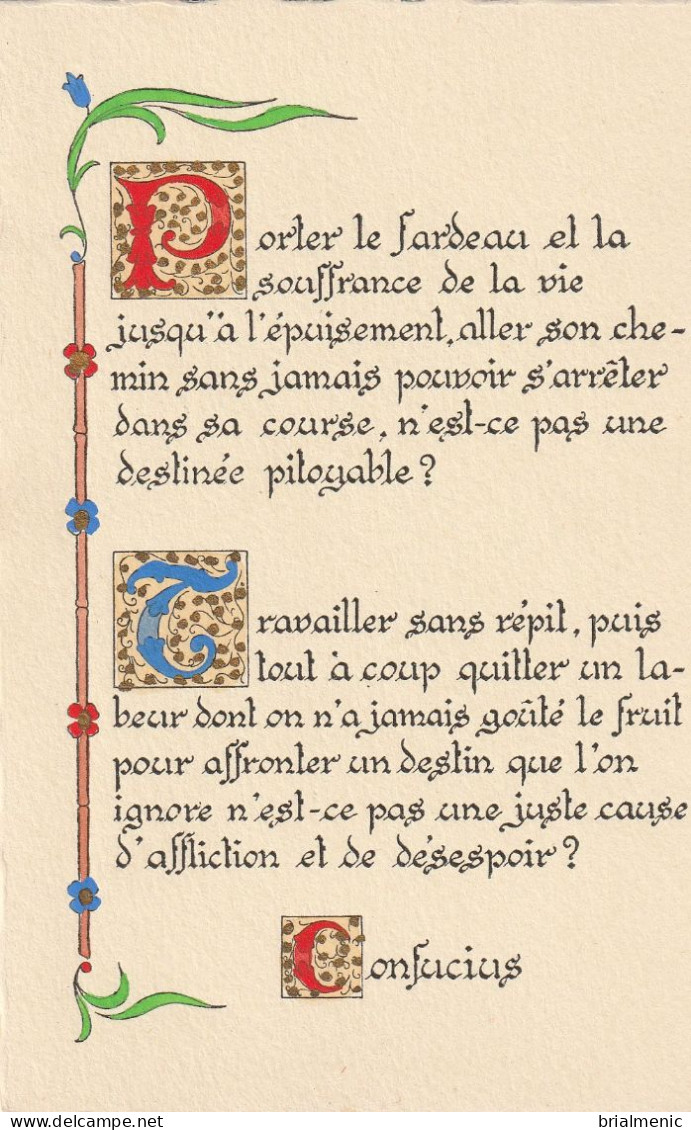 Porter le fardeau et la
souffrance de la vie
jusqu'à l'épuisement, aller son che-
min sans jamais pouvoir s'arrêter
dans sa course, n'est-ce pas une
destinée pitoyable ?
Travailler sans répit, puis
tout à coup quitter un la-
beur dont on n'a jamais goûté le fruit
pour affronter un destin que l'on
ignore n'est-ce pas une juste cause
d'affliction et de désespoir ?
Confucius
DELCAMPE.NET
brialmenic